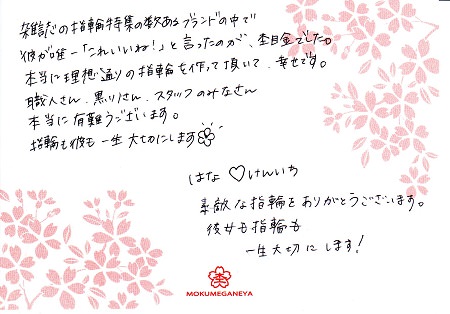 雑誌の指輪特集の数あるブランドの中で
彼が唯一「これいいね!」と言ったのが、杢目金でした。
本当に理想通りの指輪を作って頂いて、幸せです。
職人さん、黒川さん、スタッフのみなさん
本当に有難うございます。
指輪も彼も一生大切にします
はな♡けんいち
素敵な指輪をありがとうございます。
彼女も指輪も
一生大切にします!
MOKUMEGANEYA